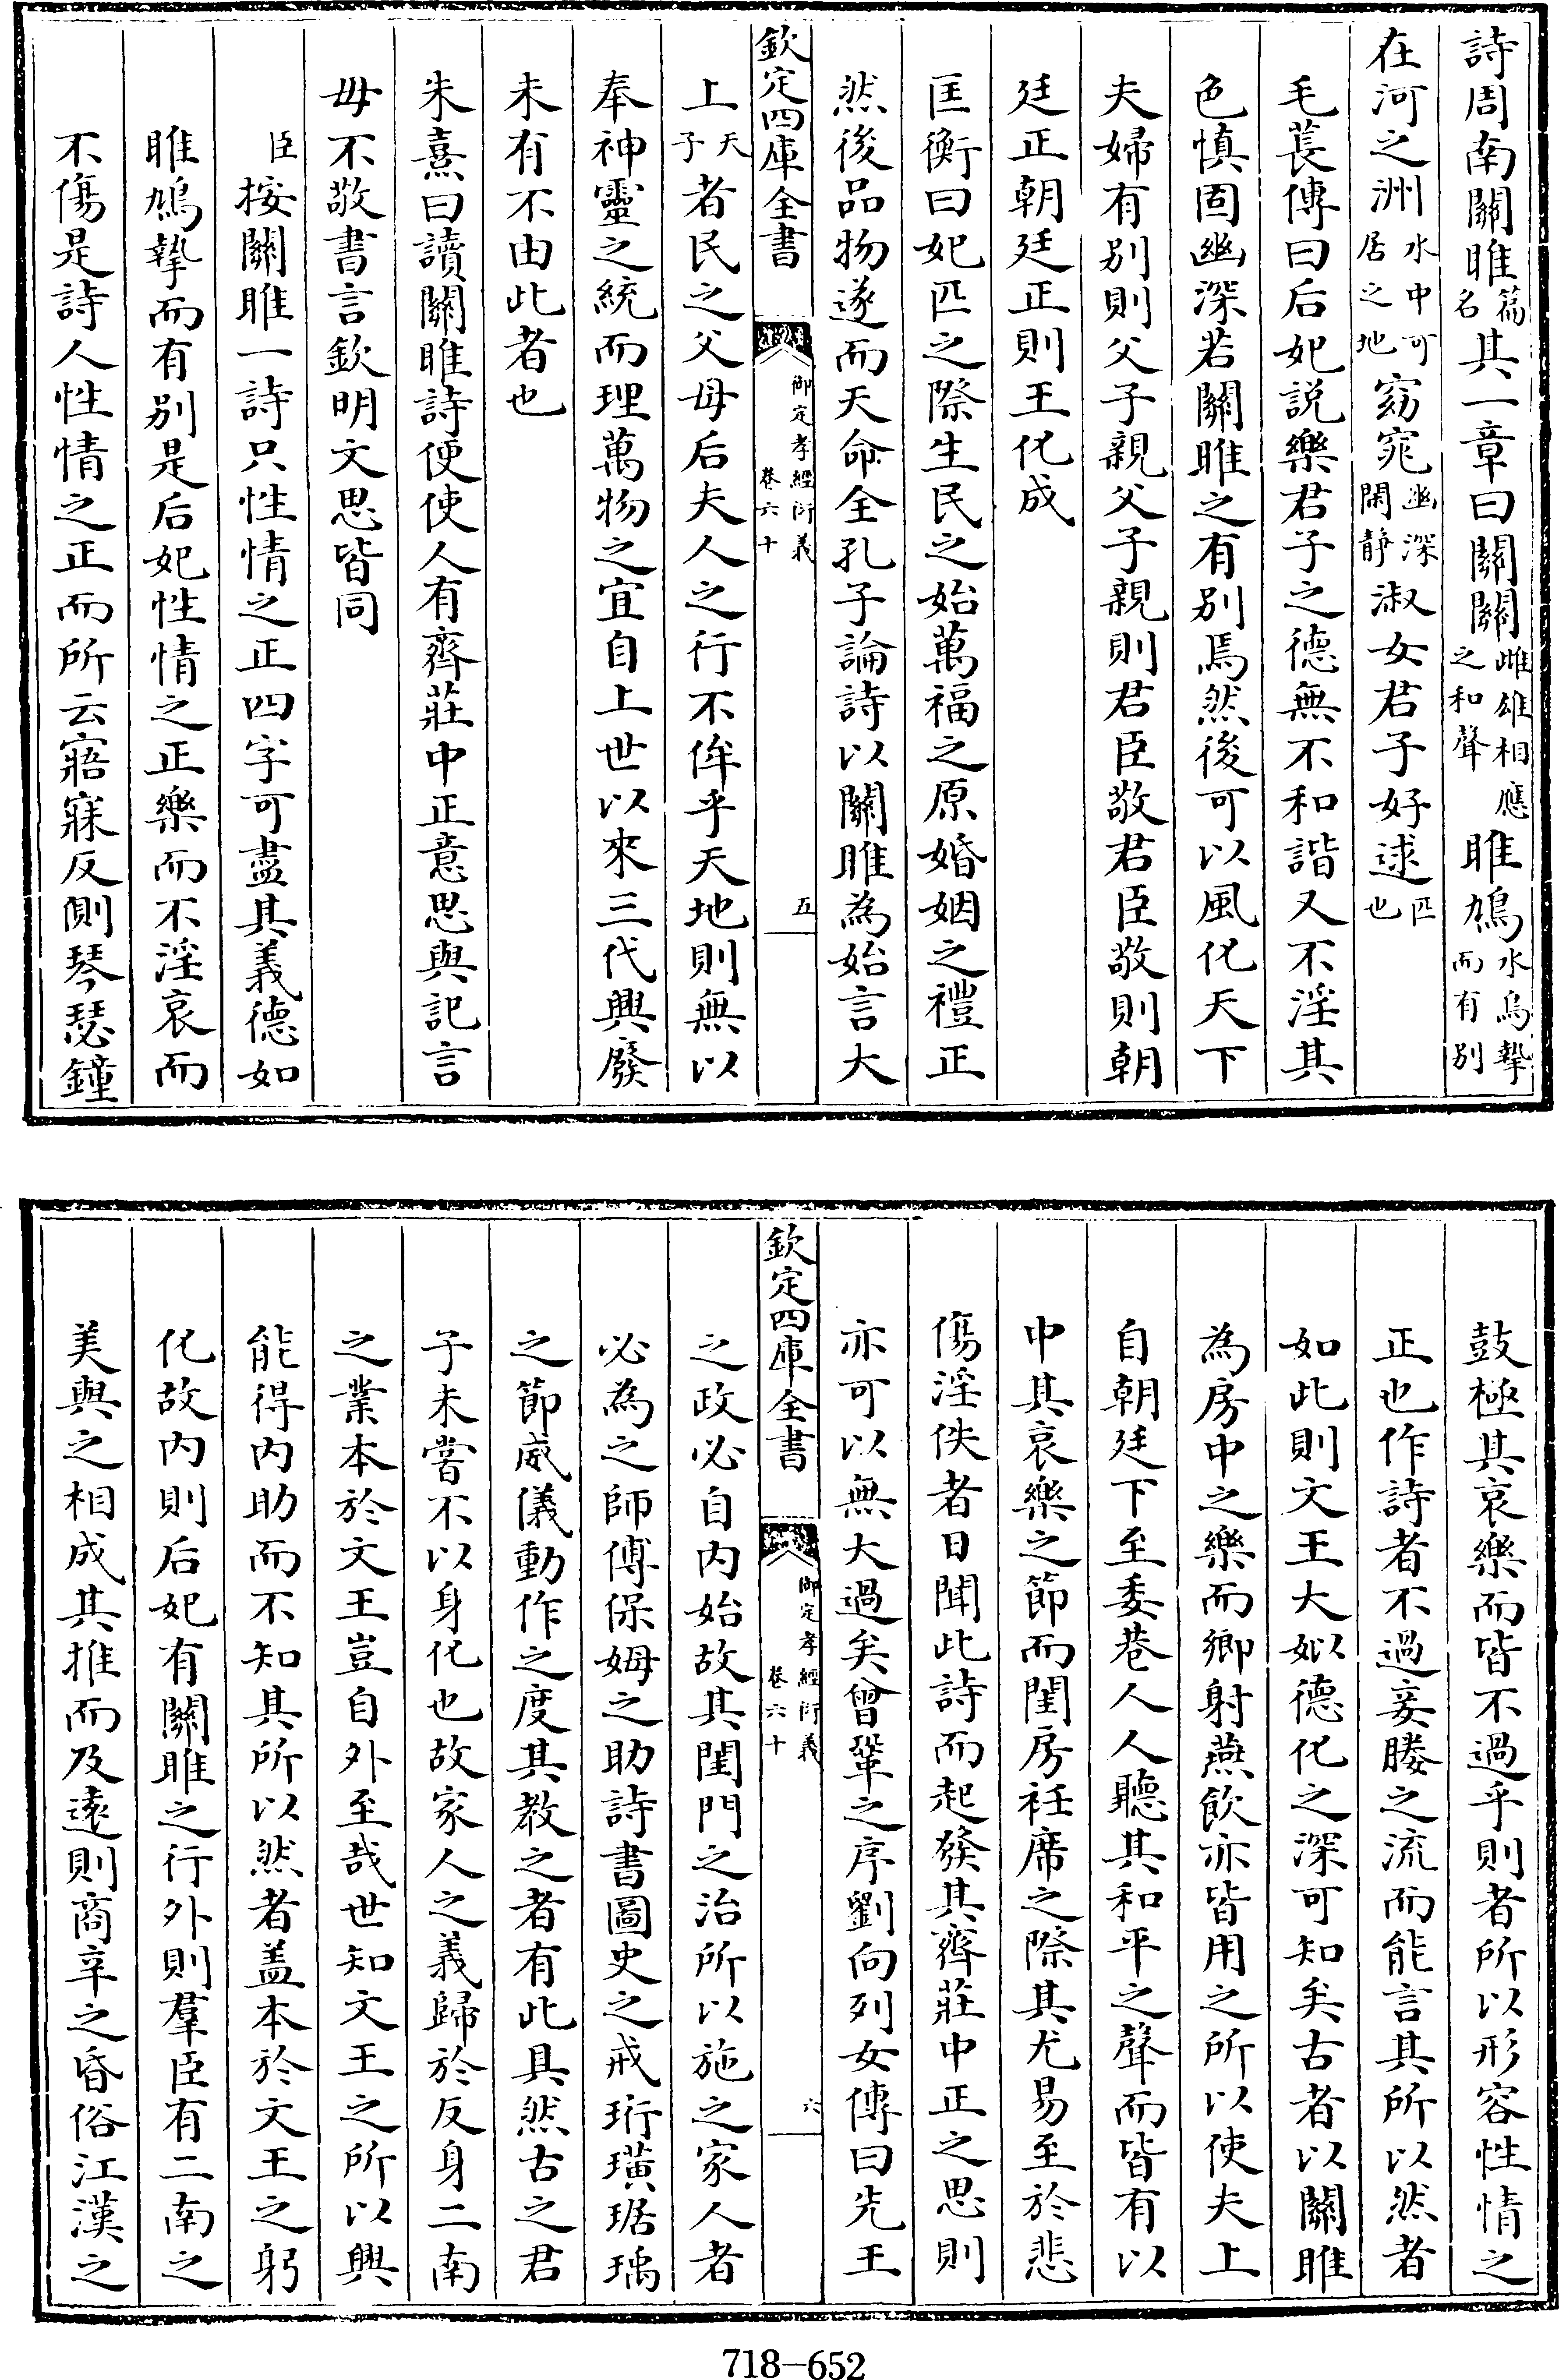 詩周南關雎篇名其一章曰關關雌雄相應之和聲雎鳩水鳥摯而有别
在河之洲水中可居之地窈窕幽深閑靜淑女君子好逑匹也
毛萇傳曰后妃説樂君子之德無不和諧又不淫其
色慎固幽深若關雎之有别焉然後可以風化天下
夫婦有别則父子親父子親則君臣敬君臣敬則朝
廷正朝廷正則王化成
匡衡曰妃匹之際生民之始萬福之原婚姻之禮正
然後品物遂而天命全孔子論詩以關雎為始言大
欽定四庫全書
御定孝經衍義
卷六十
五
上天子者民之父母后夫人之行不侔乎天地則無以
奉神靈之統而理萬物之宜自上世以來三代興廢
未有不由此者也
朱熹曰讀關雎詩便使人有齊莊中正意思與記言
毋不敬書言欽明文思皆同
臣按關雎一詩只性情之正四字可盡其義德如
雎鳩摯而有别是后妃性情之正樂而不淫哀而
不傷是詩人性情之正而所云寤寐反側琴瑟鐘
鼓極其哀樂而皆不過乎則者所以形容性情之
正也作詩者不過妾媵之流而能言其所以然者
如此則文王大姒德化之深可知矣古者以關雎
為房中之樂而鄉射燕飲亦皆用之所以使夫上
自朝廷下至委巷人人聽其和平之聲而皆有以
中其哀樂之節而閨房衽席之際其尤易至於悲
傷淫佚者日聞此詩而起發其齊莊中正之思則
亦可以無大過矣曾鞏之序劉向列女傳曰先王
欽定四庫全書
御定孝經衍義
卷六十
六
之政必自内始故其閨門之治所以施之家人者
必為之師傅保姆之助詩書圖史之戒珩璜琚瑀
之節威儀動作之度其教之者有此具然古之君
子未嘗不以身化也故家人之義歸於反身二南
之業本於文王豈自外至哉世知文王之所以興
能得内助而不知其所以然者盖本於文王之躬
化故内則后妃有關雎之行外則羣臣有二南之
美與之相成其推而及遠則商辛之昏俗江漢之
718-652